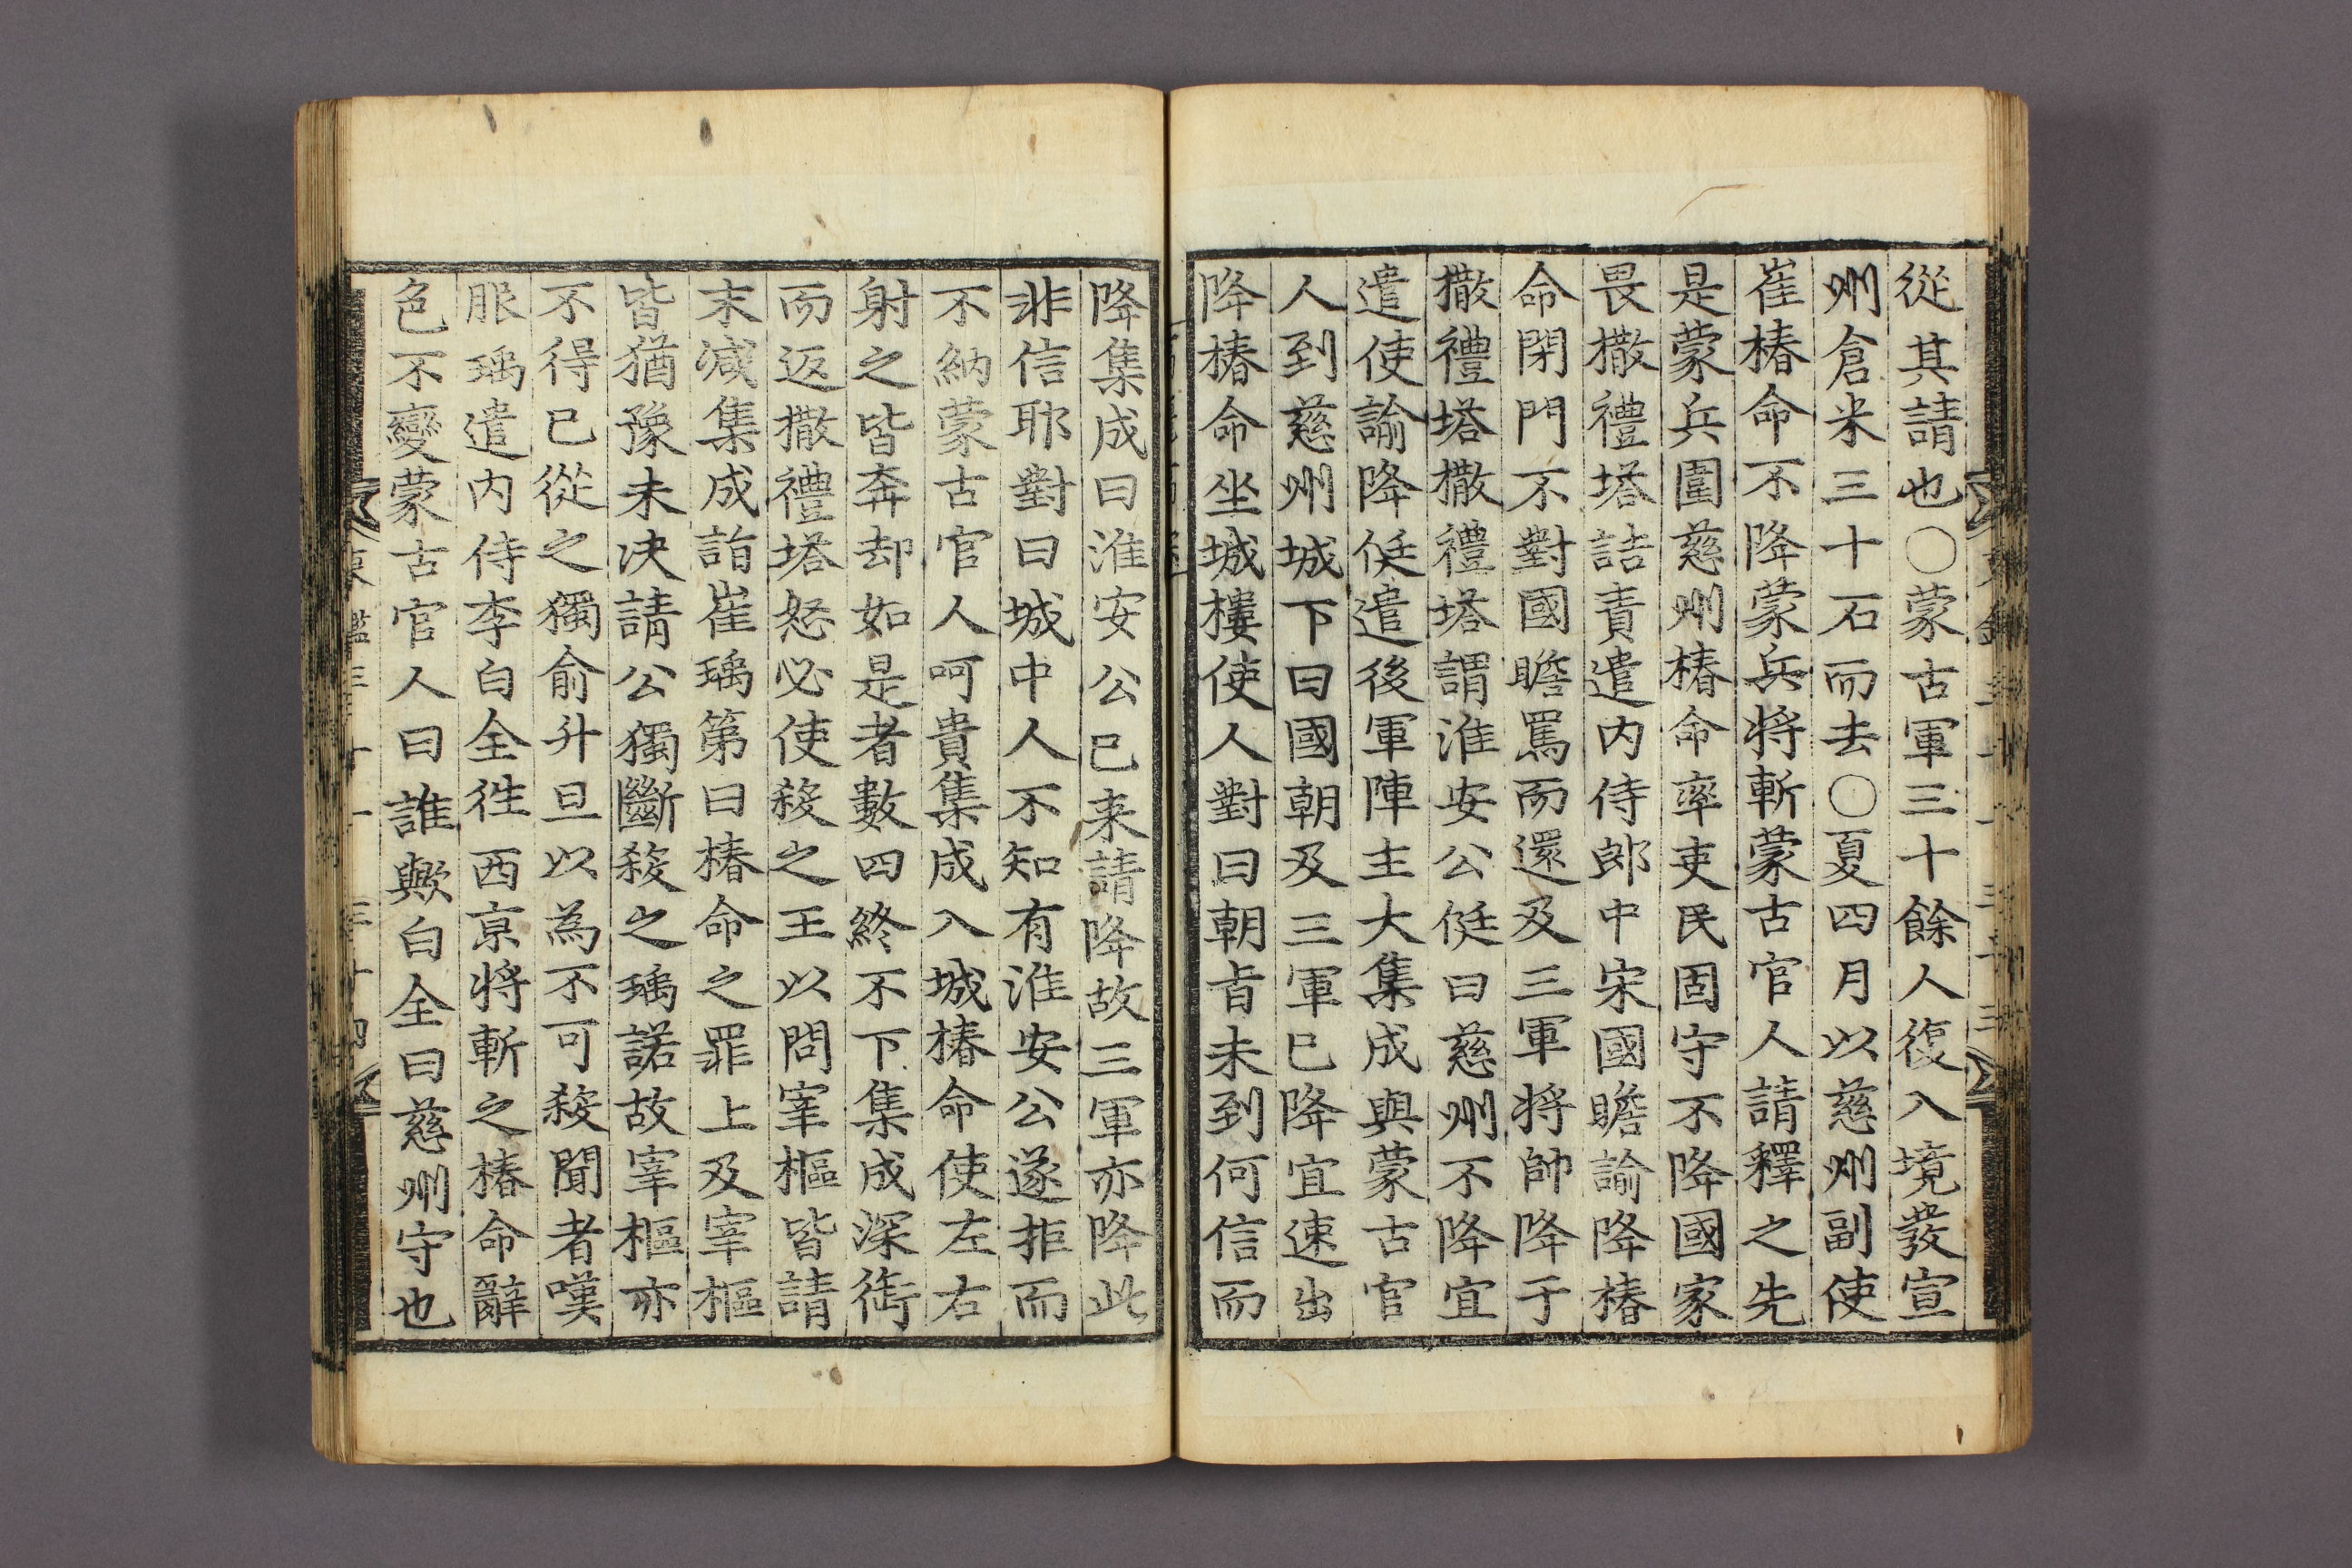 從其請也○蒙古軍三十餘人復入境發宣
州倉米三十石而去○夏四月以慈州副使
崔椿命不降蒙兵將斬蒙古官人請釋之先
是蒙兵圍慈州椿命率吏民固守不降國家
畏撒禮塔詰責遣内侍郎中宋國瞻諭降椿
命閉門不對國瞻罵而還及三軍將帥降于
撒禮塔撒禮塔謂淮安公侹曰慈州不降宜
遣使諭降侹遣後軍陣主大集成與蒙古官
人到慈州城下曰國朝及三軍已降宜速出
降椿命坐城樓使人對曰朝旨未到何信而
降集成曰淮安公已来請降故三軍亦降此
非信耶對曰城中人不知有淮安公遂拒而
不納蒙古官人呵責集成入城椿命使左右
射之皆奔却如是者數四終不下集成深銜
而返撒禮塔怒必使殺之王以問宰樞皆請
末減集成詣崔瑀第曰椿命之罪上及宰樞
皆猶豫未决請公獨斷殺之瑀諾故宰樞亦
不得已從之獨俞升旦以為不可殺聞者嘆
服瑀遣内侍李白全徃西京將斬之椿命辭
色不變蒙古官人曰誰歟白全曰慈州守也